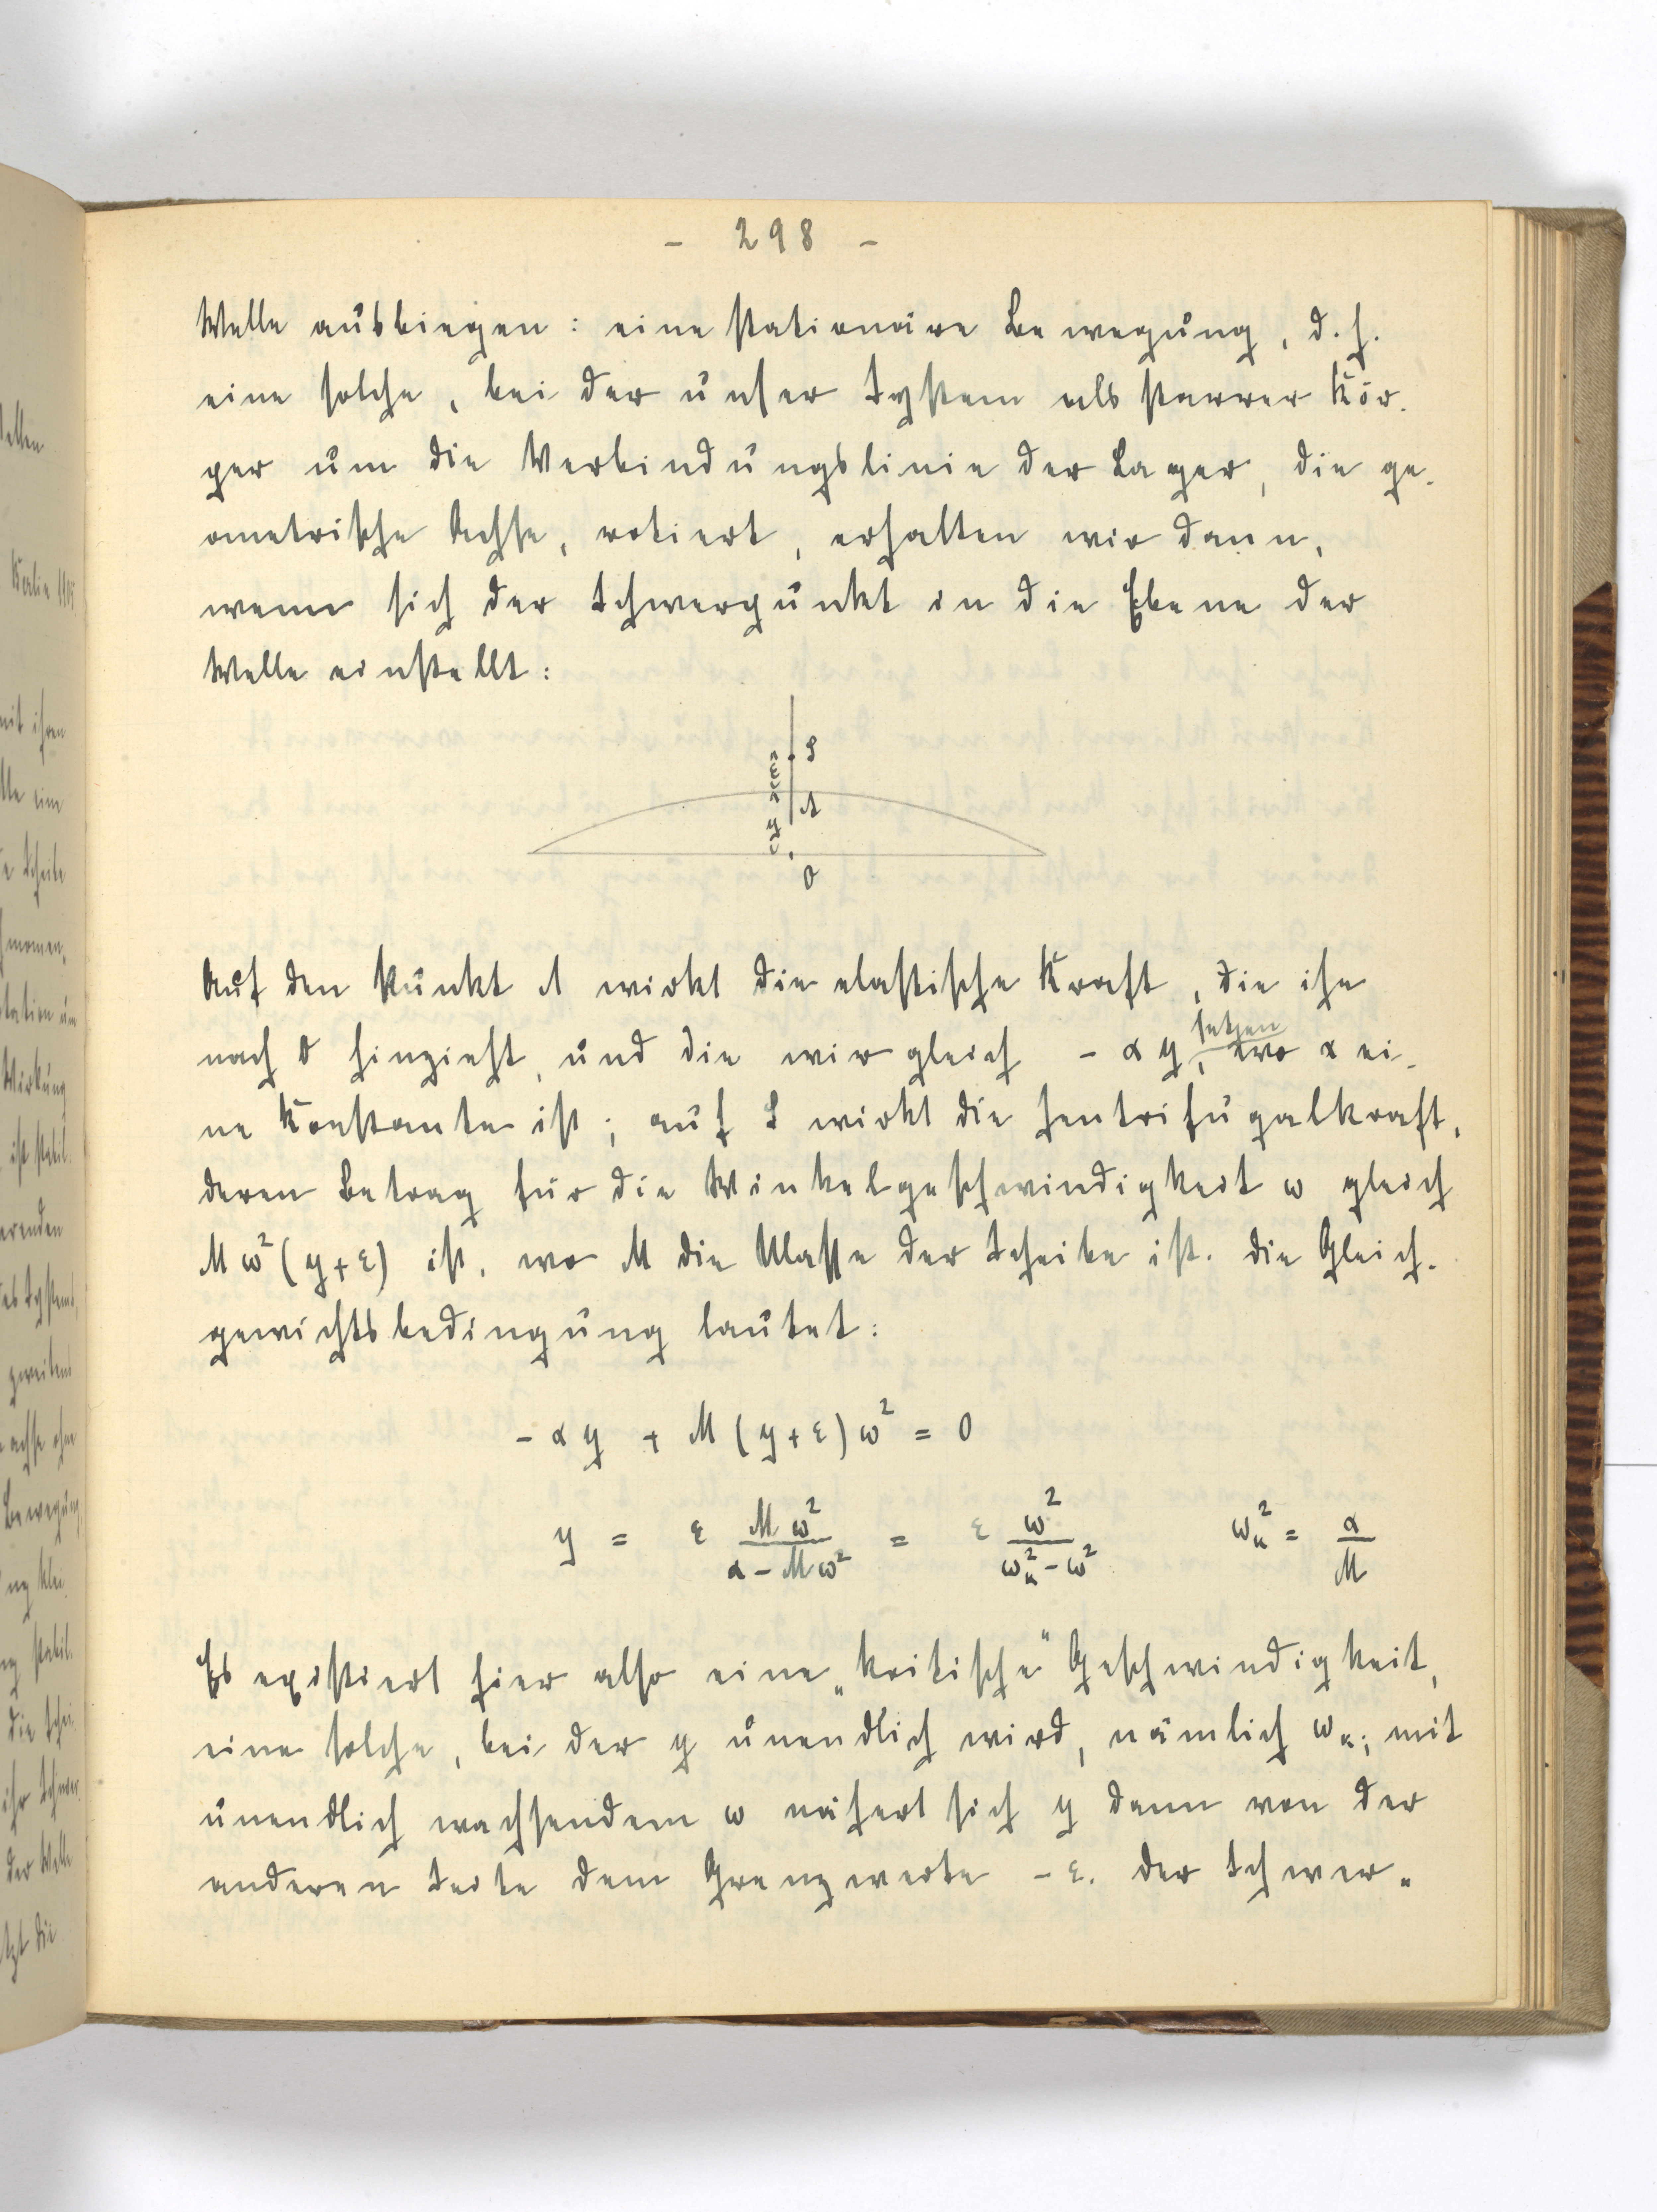 - 298 -
Welle ausbiegen: eine stationäre Bewegung, d. h.
eine solche, bei der unser System als starrer Kör-
per um die Verbindungslinie der Lager, die ge-
ometrische Achse, rotiert, erhalten wir dann,
wenn sich der Schwerpunkt in die Ebene der
Welle einstellt:
S
ε
A
y
O
Auf den Punkt A wirkt die elastische Kraft, die ihn
setzen
nach O hinzieht, und die wir gleich - αy, wo α ei-
ne Konstante ist; auf S wirkt die Zentrifugalkraft,
deren Betrag für die Winkelgeschwindigkeit ω gleich
Mω²(y+ε) ist, wo M die Masse der Scheibe ist. Die Gleich-
gewichtsbedingung lautet:
- αy + M(y+ε)ω² = 0
y = ε Mω²/(α - Mω²) = ε ω²/(ωₖ² - ω²) ωₖ² = α/M
Es existiert hier also eine „kritische" Geschwindigkeit,
eine solche, bei der y unendlich wird, nämlich ωₖ; mit
unendlich wachsendem ω nähert sich y dann von der
anderen Seite dem Grenzwerte - ε. Der Schwer-